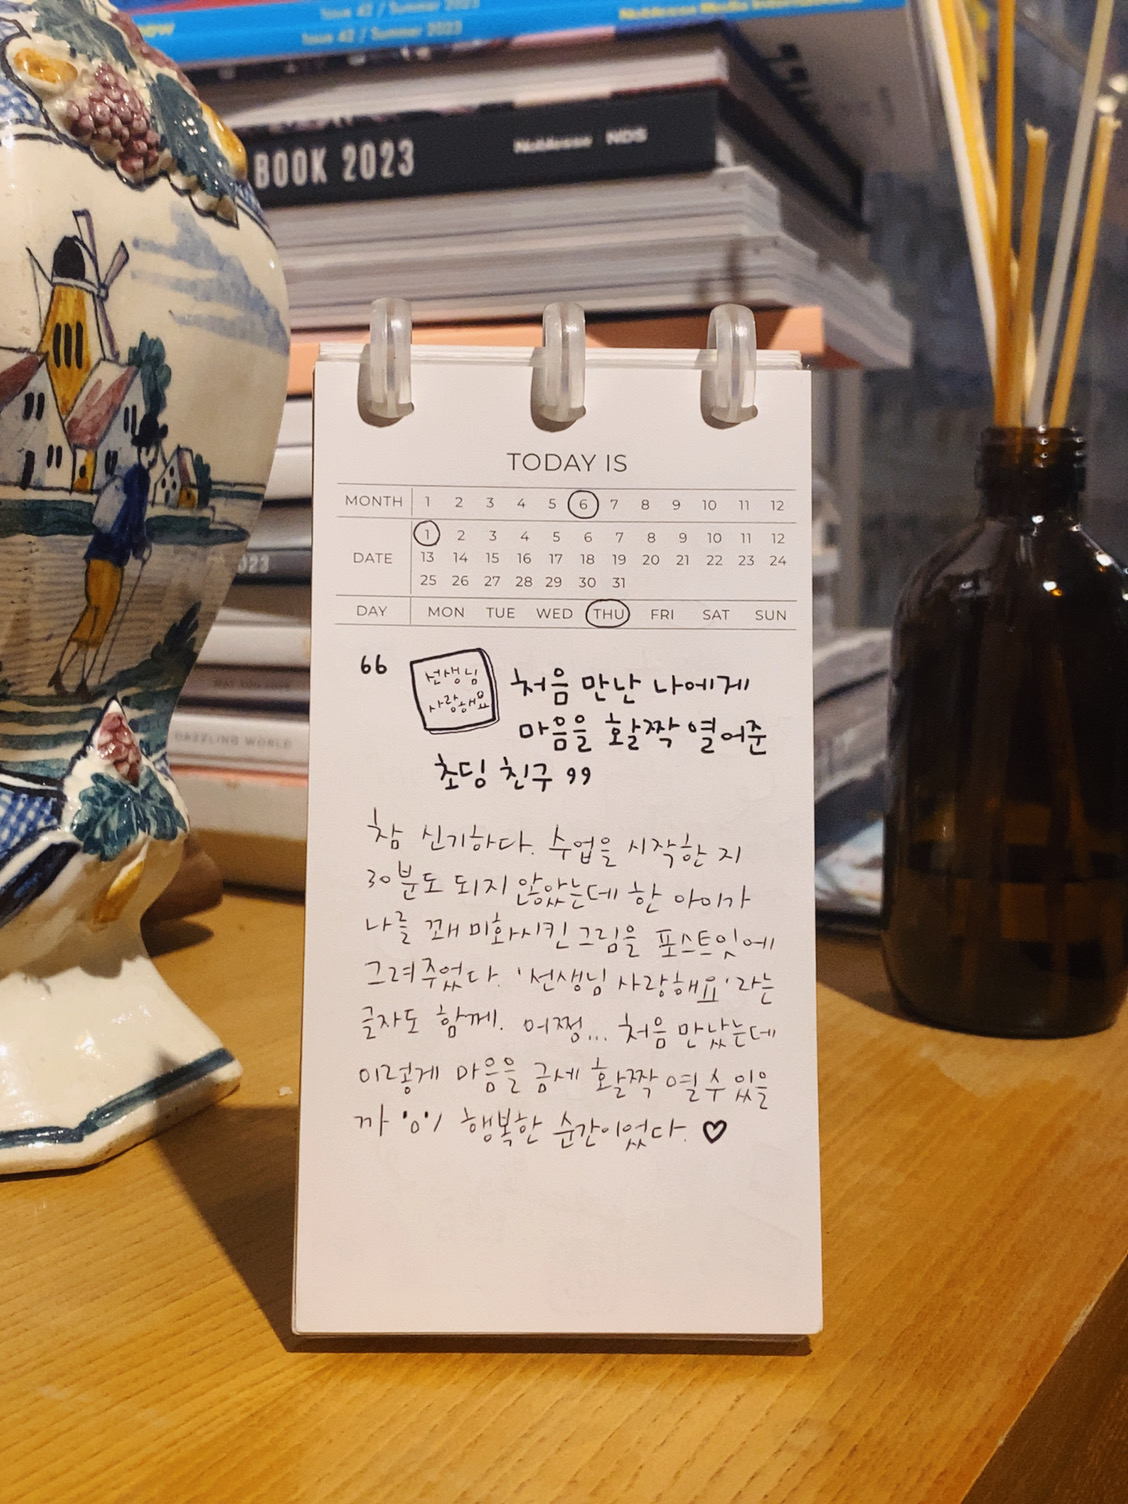 Issue 42 / Summer 2023
Issue 42 / Summer 2023
Noblesse Media International
BOOK 2023
Noblesse NDS
DAZZLING WORLD
TODAY IS
MONTH 1 2 3 4 5 6 7 8 9 10 11 12
DATE 1 2 3 4 5 6 7 8 9 10 11 12
13 14 15 16 17 18 19 20 21 22 23 24
25 26 27 28 29 30 31
DAY MON TUE WED THU FRI SAT SUN
선생님
사랑해요
“ 처음 만난 나에게
마음을 활짝 열어준
초딩 친구 ”
참 신기하다. 수업을 시작한 지
30분도 되지 않았는데 한 아이가
나를 꽤 미화시킨 그림을 포스트잇에
그려주었다. '선생님 사랑해요' 라는
글자도 함께. 어쩜... 처음 만났는데
이렇게 마음을 금세 활짝 열 수 있을
까 'o'/ 행복한 순간이었다. ♡